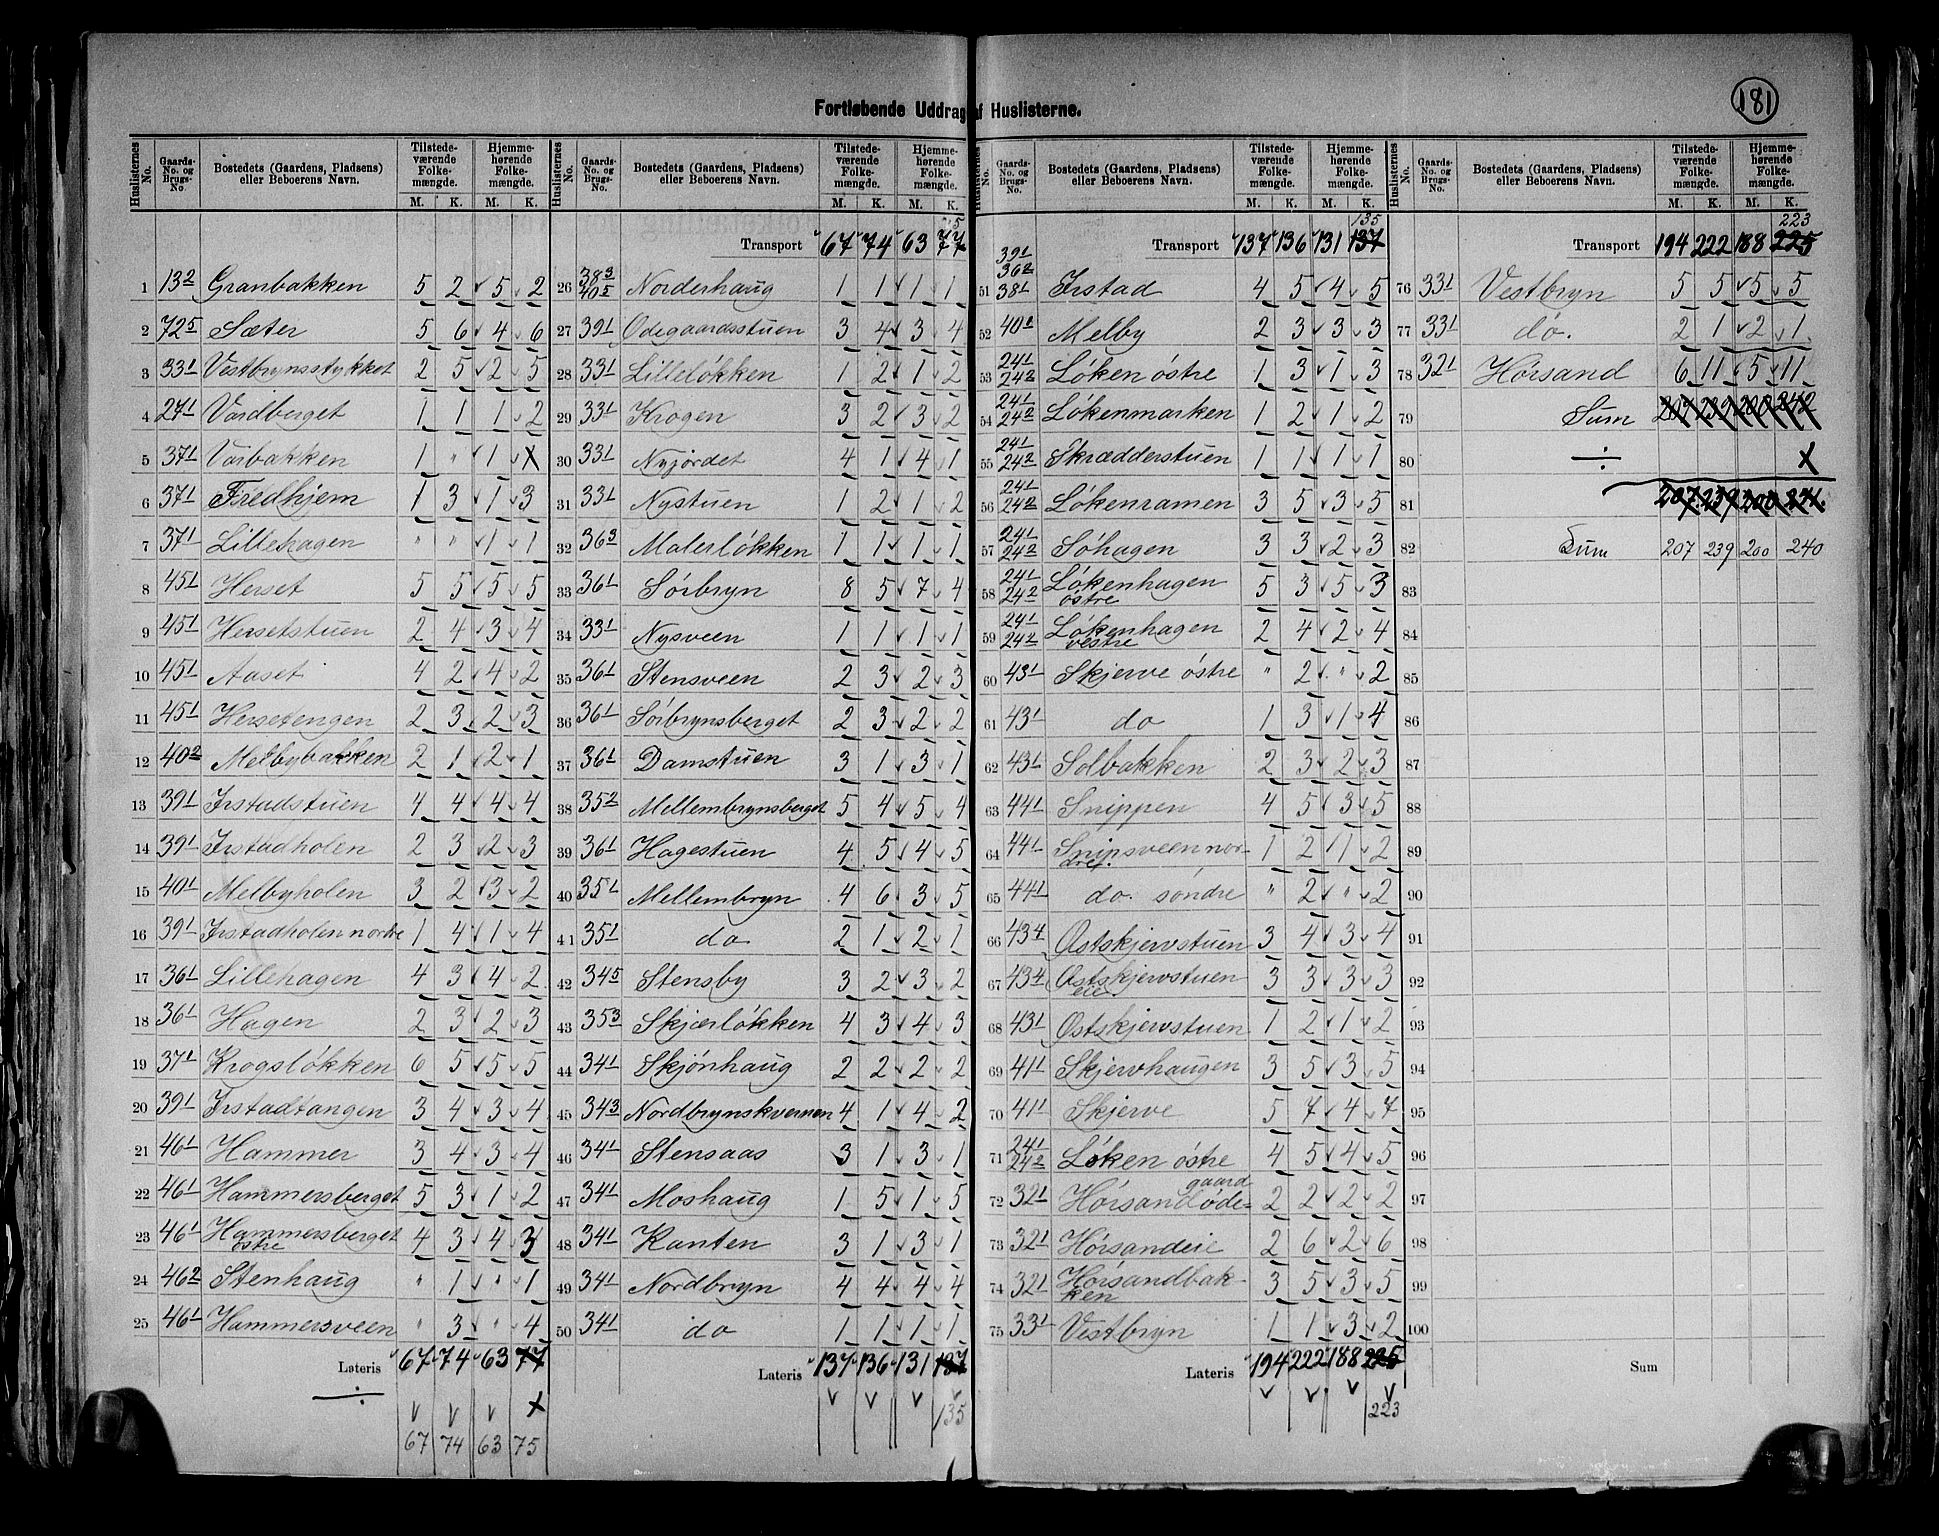 181
Fortløbende Uddrag af Huslisterne.
Huslisternes No. | Gaards-No. og Brugs-No. | Bostedets (Gaardens, Pladsens) eller Beboerens Navn. | Tilstedeværende Folkemængde. M. K. | Hjemmehørende Folkemængde. M. K.
1 13 2 Granbakken 5 2 5 2
2 72 5 Sæter 5 6 4 6
3 33 1 Vestbrynsstykket 2 5 2 5
4 27 1 Vardberget 1 1 1 2
5 37 1 Varbakken 1 " 1 X
6 37 1 Fredhjem 1 3 1 3
7 37 1 Lillehagen " " 1 1
8 45 1 Herset 5 5 5 5
9 45 1 Hersetstuen 2 4 3 4
10 45 1 Aaset 4 2 4 2
11 45 1 Hersetengen 2 3 2 3
12 40 2 Melbybakken 2 1 2 1
13 39 1 Irstadstuen 4 4 4 4
14 39 1 Irstadholen 2 3 2 3
15 40 1 Melbyholen 3 2 3 2
16 39 1 Irstadholen nordre 1 4 1 4
17 36 1 Lillehagen 4 3 4 2
18 36 1 Hagen 2 3 2 3
19 37 1 Krogsløkken 6 5 5 5
20 39 1 Irstadtangen 3 4 3 4
21 46 1 Hammer 3 4 3 4
22 46 1 Hammersberget 5 3 1 2
23 46 1 Hammersberget østre 4 3 4 3
24 46 2 Stenhaug " 1 " 1
25 46 1 Hammersveen " 3 " 4
Lateris 67 74 63 77
÷ X
67 74 63 75
Transport 67 74 63 77 75
26 38 3 40 5 Norderhaug 1 1 1 1
27 39 1 Ødegaardsstuen 3 4 3 4
28 33 1 Lilleløkken 1 2 1 2
29 33 1 Krogen 3 2 3 2
30 33 1 Nyjordet 4 1 4 1
31 33 1 Nystuen 1 2 1 2
32 36 3 Malerløkken 1 1 1 1
33 36 1 Sørbryn 8 5 7 4
34 33 1 Nysveen 1 1 1 1
35 36 1 Stensveen 2 3 2 3
36 36 1 Sørbrynsberget 2 3 2 2
37 36 1 Damstuen 3 1 3 1
38 35 2 Mellembrynsberget 5 4 5 4
39 36 1 Hagestuen 4 5 4 5
40 35 1 Mellembryn 4 6 3 5
41 35 1 do 2 1 2 1
42 34 5 Stensby 3 2 3 2
43 35 3 Skjærløkken 4 3 4 3
44 34 1 Skjønhaug 2 2 2 2
45 34 3 Nordbrynskvernen 4 1 4 2
46 34 1 Stensaas 3 1 3 1
47 34 1 Moshaug 1 5 1 5
48 34 1 Kanten 3 1 3 1
49 34 1 Nordbryn 4 4 4 4
50 34 1 do 1 1 1 1
Lateris 137 136 131 137
135
Huslisternes No. | Gaards-No. og Brugs-No. | Bostedets (Gaardens, Pladsens) eller Beboerens Navn. | Tilstedeværende Folkemængde. M. K. | Hjemmehørende Folkemængde. M. K.
Transport 137 136 131 137 135
51 39 1 36 2 38 1 Irstad 4 5 4 5
52 40 2 Melby 2 3 3 3
53 24 1 24 2 Løken østre 1 3 1 3
54 24 1 24 2 Løkenmarken 1 2 1 2
55 24 1 24 2 Skrædderstuen 1 1 1 1
56 24 1 24 2 Løkenramen 3 5 3 5
57 24 1 24 2 Søhagen 3 3 2 3
58 24 1 24 2 Løkenhagen østre 5 3 5 3
59 24 1 24 2 Løkenhagen vestre 2 4 2 4
60 43 1 Skjerve østre " 2 " 2
61 43 1 do 1 3 1 4
62 43 1 Solbakken 2 3 2 3
63 44 1 Snippen 4 5 3 5
64 44 1 Snipsveen nordre 1 2 1 2
65 44 1 do. søndre " 2 " 2
66 43 4 Østskjervstuen 3 4 3 4
67 43 4 Østskjervstuen eie 3 3 3 3
68 43 1 Østskjervstuen 1 2 1 2
69 41 1 Skjervhaugen 3 5 3 5
70 41 1 Skjerve 5 7 4 7
71 24 1 24 2 Løken østre 4 5 4 5
72 32 1 Hørsandødegaard 2 2 2 2
73 32 1 Hørsandeie 2 6 2 6
74 32 1 Hørsandbakken 3 5 3 5
75 33 1 Vestbryn 1 1 3 2
Lateris 194 222 188 225
223
Transport 194 222 188 225 223
76 33 1 Vestbryn 5 5 5 5
77 33 1 do. 2 1 2 1
78 32 1 Hørsand 6 11 5 11
79 Sum 207 239 200 242
80 ÷ X
81 207 239 200 241
82 Sum 207 239 200 240
83
84
85
86
87
88
89
90
91
92
93
94
95
96
97
98
99
100
Sum